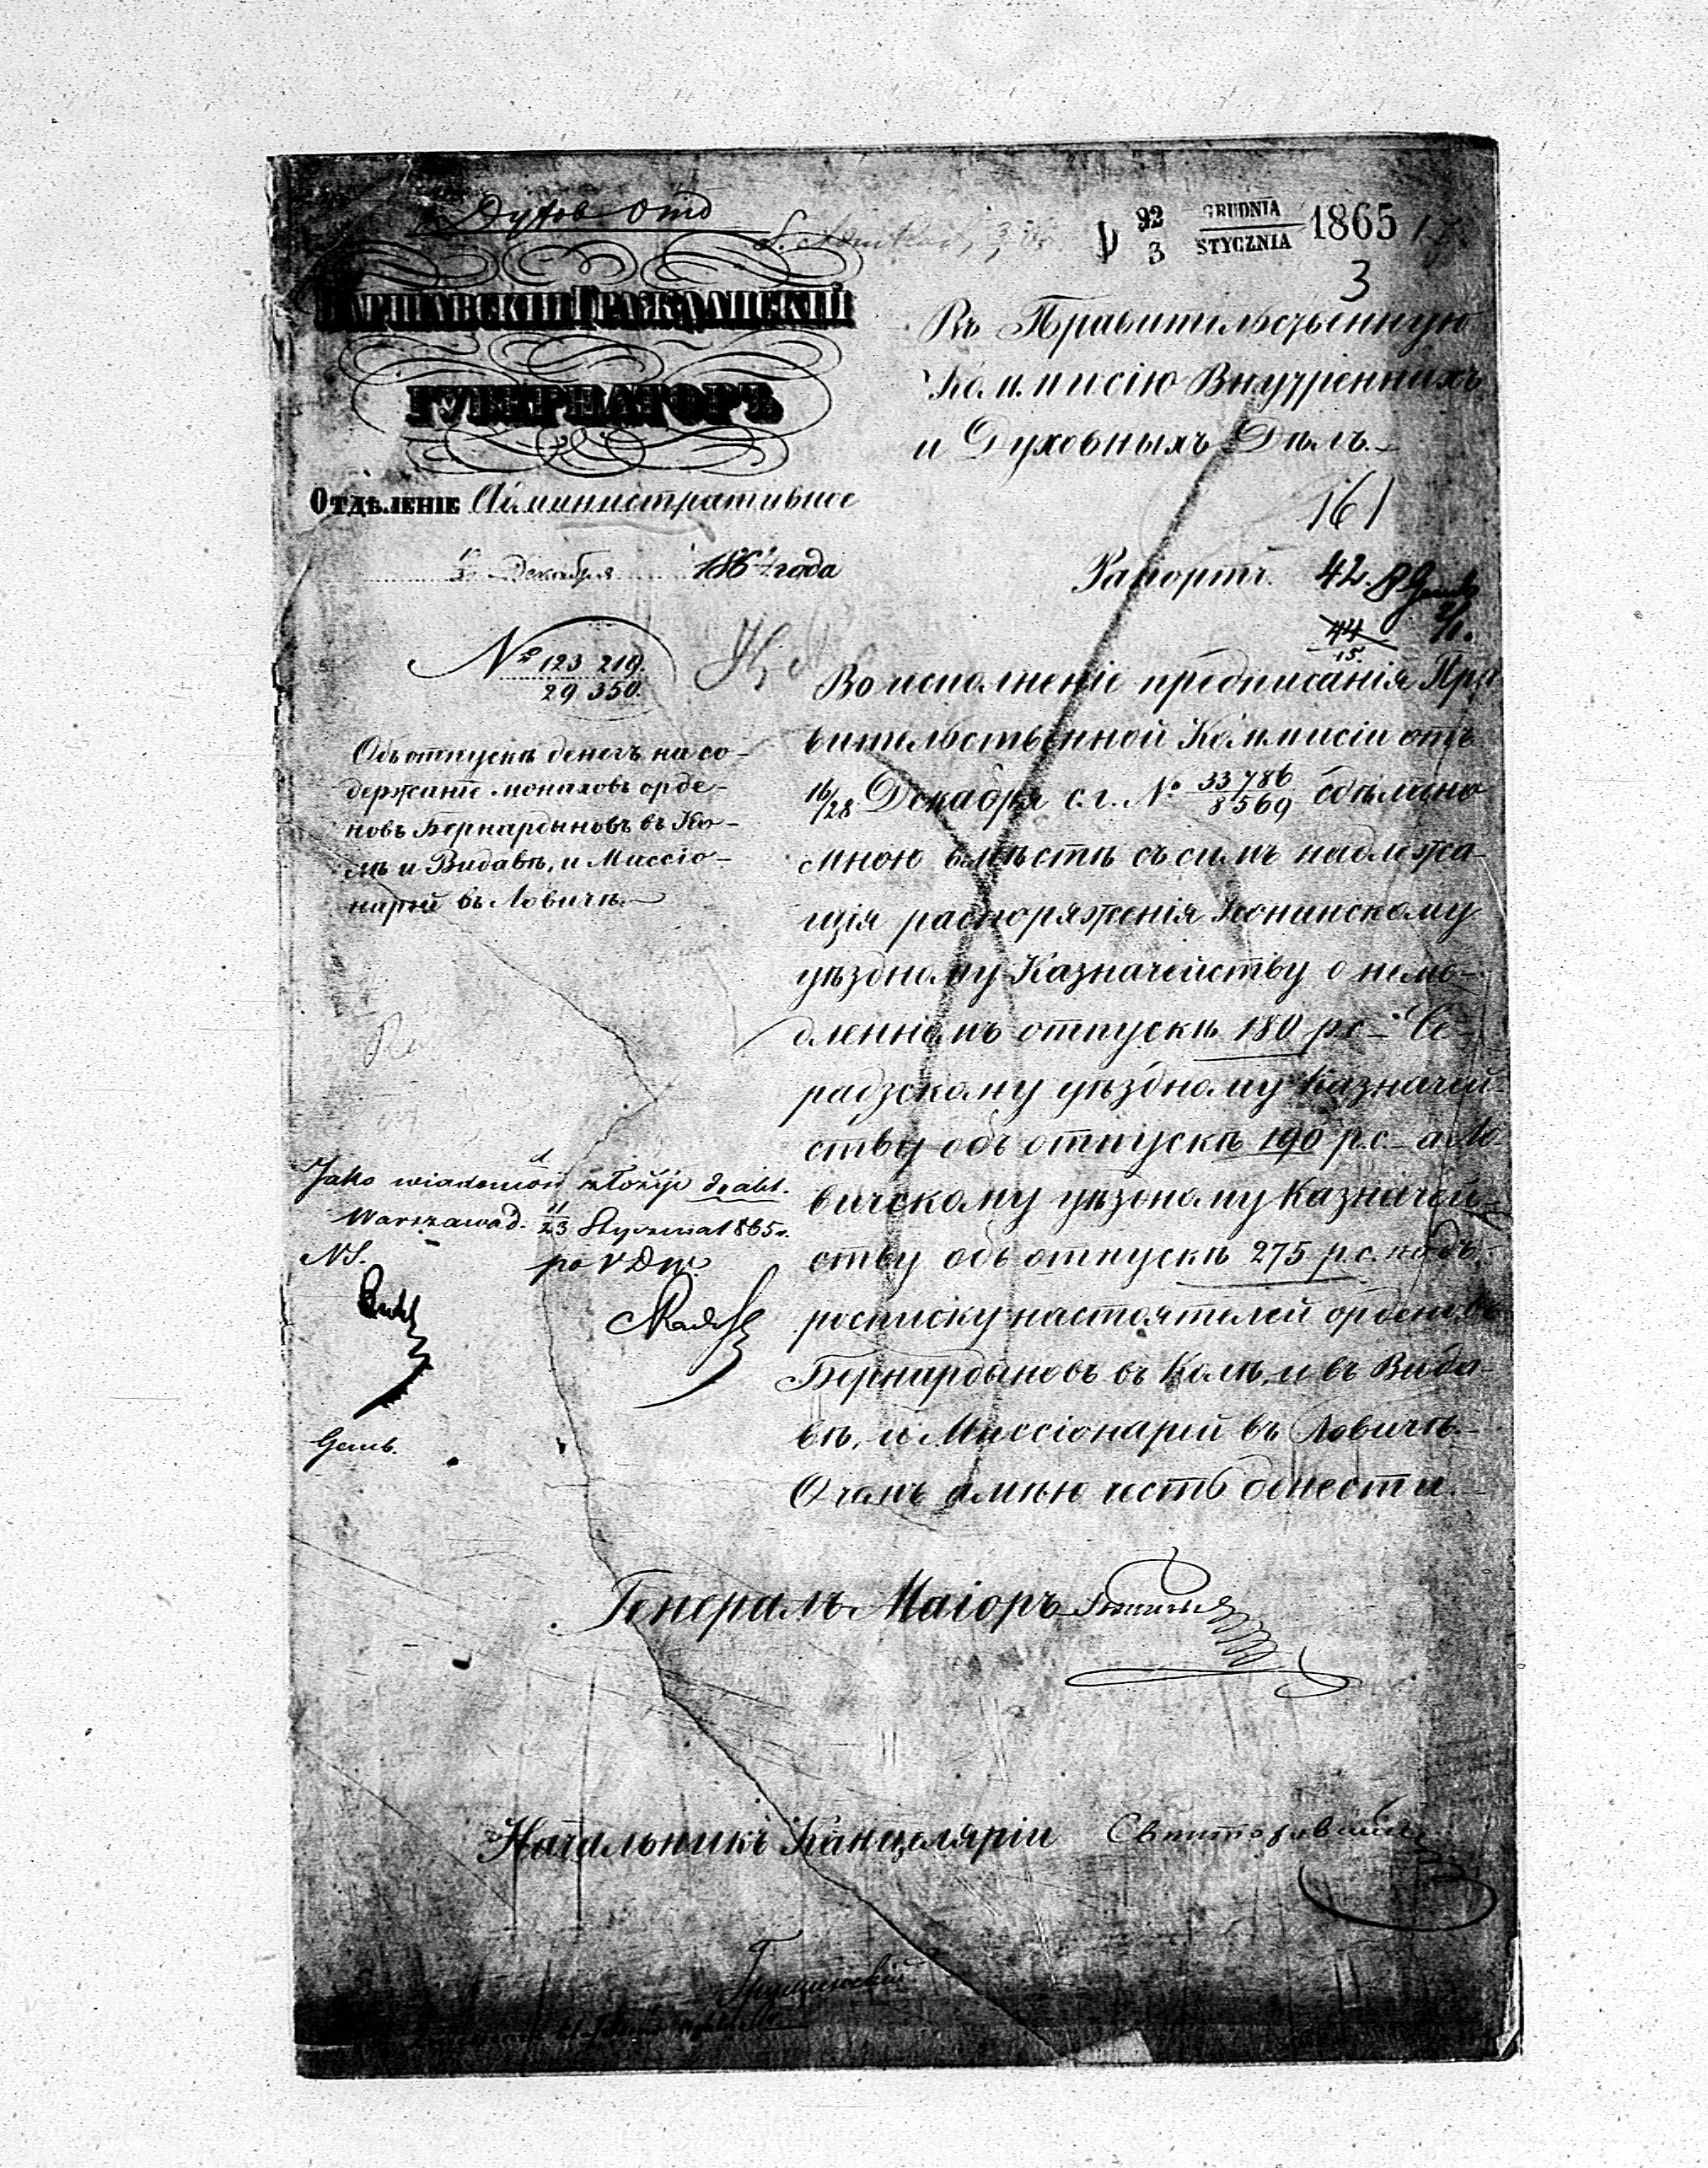 Духов Отд
22 GRUDNIA
3 STYCZNIA 1865
3
ВАРШАВСКІЙ ГРАЖДАНСКІЙ
ГУБЕРНАТОРЪ
ОТДѢЛЕНІЕ Административное
Декабря 1864 года
№ 123 219.
29 350.
Объ отпускѣ денегъ на со-
держаніе монаховъ орде-
новъ Бернардыновъ въ Ко-
лѣ и Видавѣ, и Миссіо-
нарій въ Ловичѣ.
Въ Правительственную
Коммисію Внутреннихъ
и Духовныхъ Дѣлъ.
161
Рапортъ.
42.
44
15.
Во исполненіе предписанія Пра
вительственной Коммисіи отъ
16/28 Декабря с. г. № 33786/8569 сдѣлано
мною вмѣстѣ съ симъ надлежа-
щія распоряженія Конинскому
уѣздному Казначейству о неме-
дленномъ отпускѣ 180 р.с. - Се-
радзскому уѣздному Казначей
ству объ отпускѣ 190 р.с. а Ло
вичскому уѣздному Казначей-
ству объ отпускѣ 275 р.с. подъ
росписку настоятелей орденовъ
Бернардыновъ въ Колѣ, и въ Вида-
вѣ, и Миссіонарій въ Ловичѣ.
О чемъ имѣю честь донести.
Jako wiadomość złożyć do akt.
Warszawa d. 11/23 Stycznia 1865 r.
NS.
po V Dyr.
Генералъ Маіоръ
Начальникъ Канцеляріи